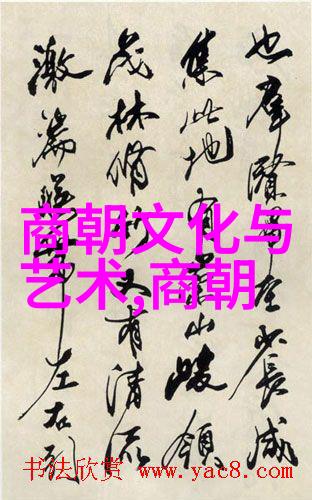 也群賢畢至少長咸
集此地有崇山峻領
茂林脩竹又有清流
激湍暎帶左右引
商朝文化与
艺术,商朝
书法欣赏 www.yac8.com